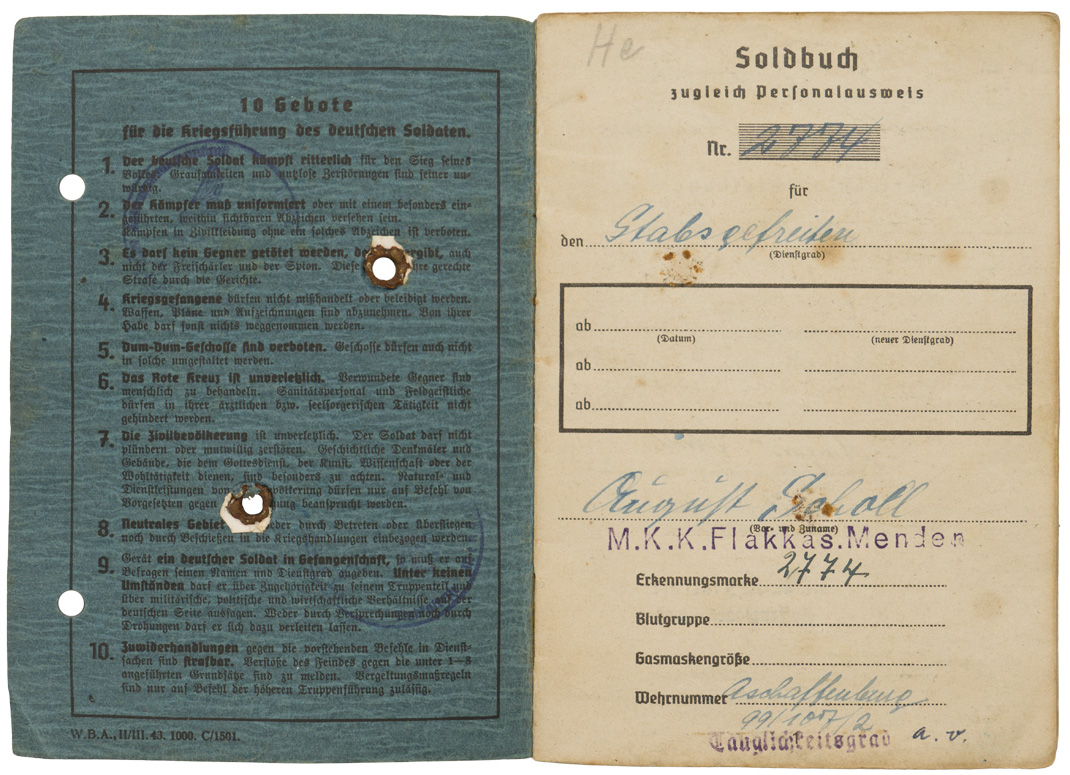 10 Gebote
für die Kriegsführung des deutschen Soldaten.
1. Der deutsche Soldat kämpft ritterlich für den Sieg seines
Volkes. Grausamkeiten und nutzlose Zerstörungen sind seiner un-
würdig.
2. Der Kämpfer muß uniformiert oder mit einem besonders ein-
geführten, weithin sichtbaren Abzeichen versehen sein.
Kämpfen in Zivilkleidung ohne ein solches Abzeichen ist verboten.
3. Es darf kein Gegner getötet werden, de ergibt, auch
nicht der Freischärler und der Spion. Diese ihre gerechte
Strafe durch die Gerichte.
4. Kriegsgefangene dürfen nicht mißhandelt oder beleidigt werden.
Waffen, Pläne und Aufzeichnungen sind abzunehmen. Von ihrer
Habe darf sonst nichts weggenommen werden.
5. Dum-Dum-Geschosse sind verboten. Geschosse dürfen auch nicht
in solche umgestaltet werden.
6. Das Rote Kreuz ist unverletzlich. Verwundete Gegner sind
menschlich zu behandeln. Sanitätspersonal und Feldgeistliche
dürfen in ihrer ärztlichen bzw. seelsorgerischen Tätigkeit nicht
gehindert werden.
7. Die Zivilbevölkerung ist unverletzlich. Der Soldat darf nicht
plündern oder mutwillig zerstören. Geschichtliche Denkmäler und
Gebäude, die dem Gottesdienst, der Kunst, Wissenschaft oder der
Wohltätigkeit dienen, sind besonders zu achten. Natural- und
Dienstleistungen von völkerung dürfen nur auf Befehl von
Vorgesetzten gegen ung beansprucht werden.
8. Neutrales Gebiet der durch Betreten oder Überfliegen
noch durch Beschießen in die Kriegshandlungen einbezogen werden.
9. Gerät ein deutscher Soldat in Gefangenschaft, so muß er auf
Befragen seinen Namen und Dienstgrad angeben. Unter keinen
Umständen darf er über Zugehörigkeit zu seinem Truppenteil und
über militärische, politische und wirtschaftliche Verhältnisse auf der
deutschen Seite aussagen. Weder durch Versprechungen noch durch
Drohungen darf er sich dazu verleiten lassen.
10. Zuwiderhandlungen gegen die vorstehenden Befehle in Dienst-
sachen sind strafbar. Verstöße des Feindes gegen die unter 1—8
angeführten Grundsätze sind zu melden. Vergeltungsmaßregeln
sind nur auf Befehl der höheren Truppenführung zulässig.
W.B.A., II/III. 43. 1000. C/1501.
He
Soldbuch
zugleich Personalausweis
Nr. 2774
für
den Stabsgefreiten
(Dienstgrad)
ab
(Datum) (neuer Dienstgrad)
ab
ab
August Scholl
(Vor- und Zuname)
M.K.K.Flakkas.Menden
Erkennungsmarke 2774
Blutgruppe
Gasmaskengröße
Wehrnummer Aschaffenburg
99/107/2
Tauglichkeitsgrad a. v.